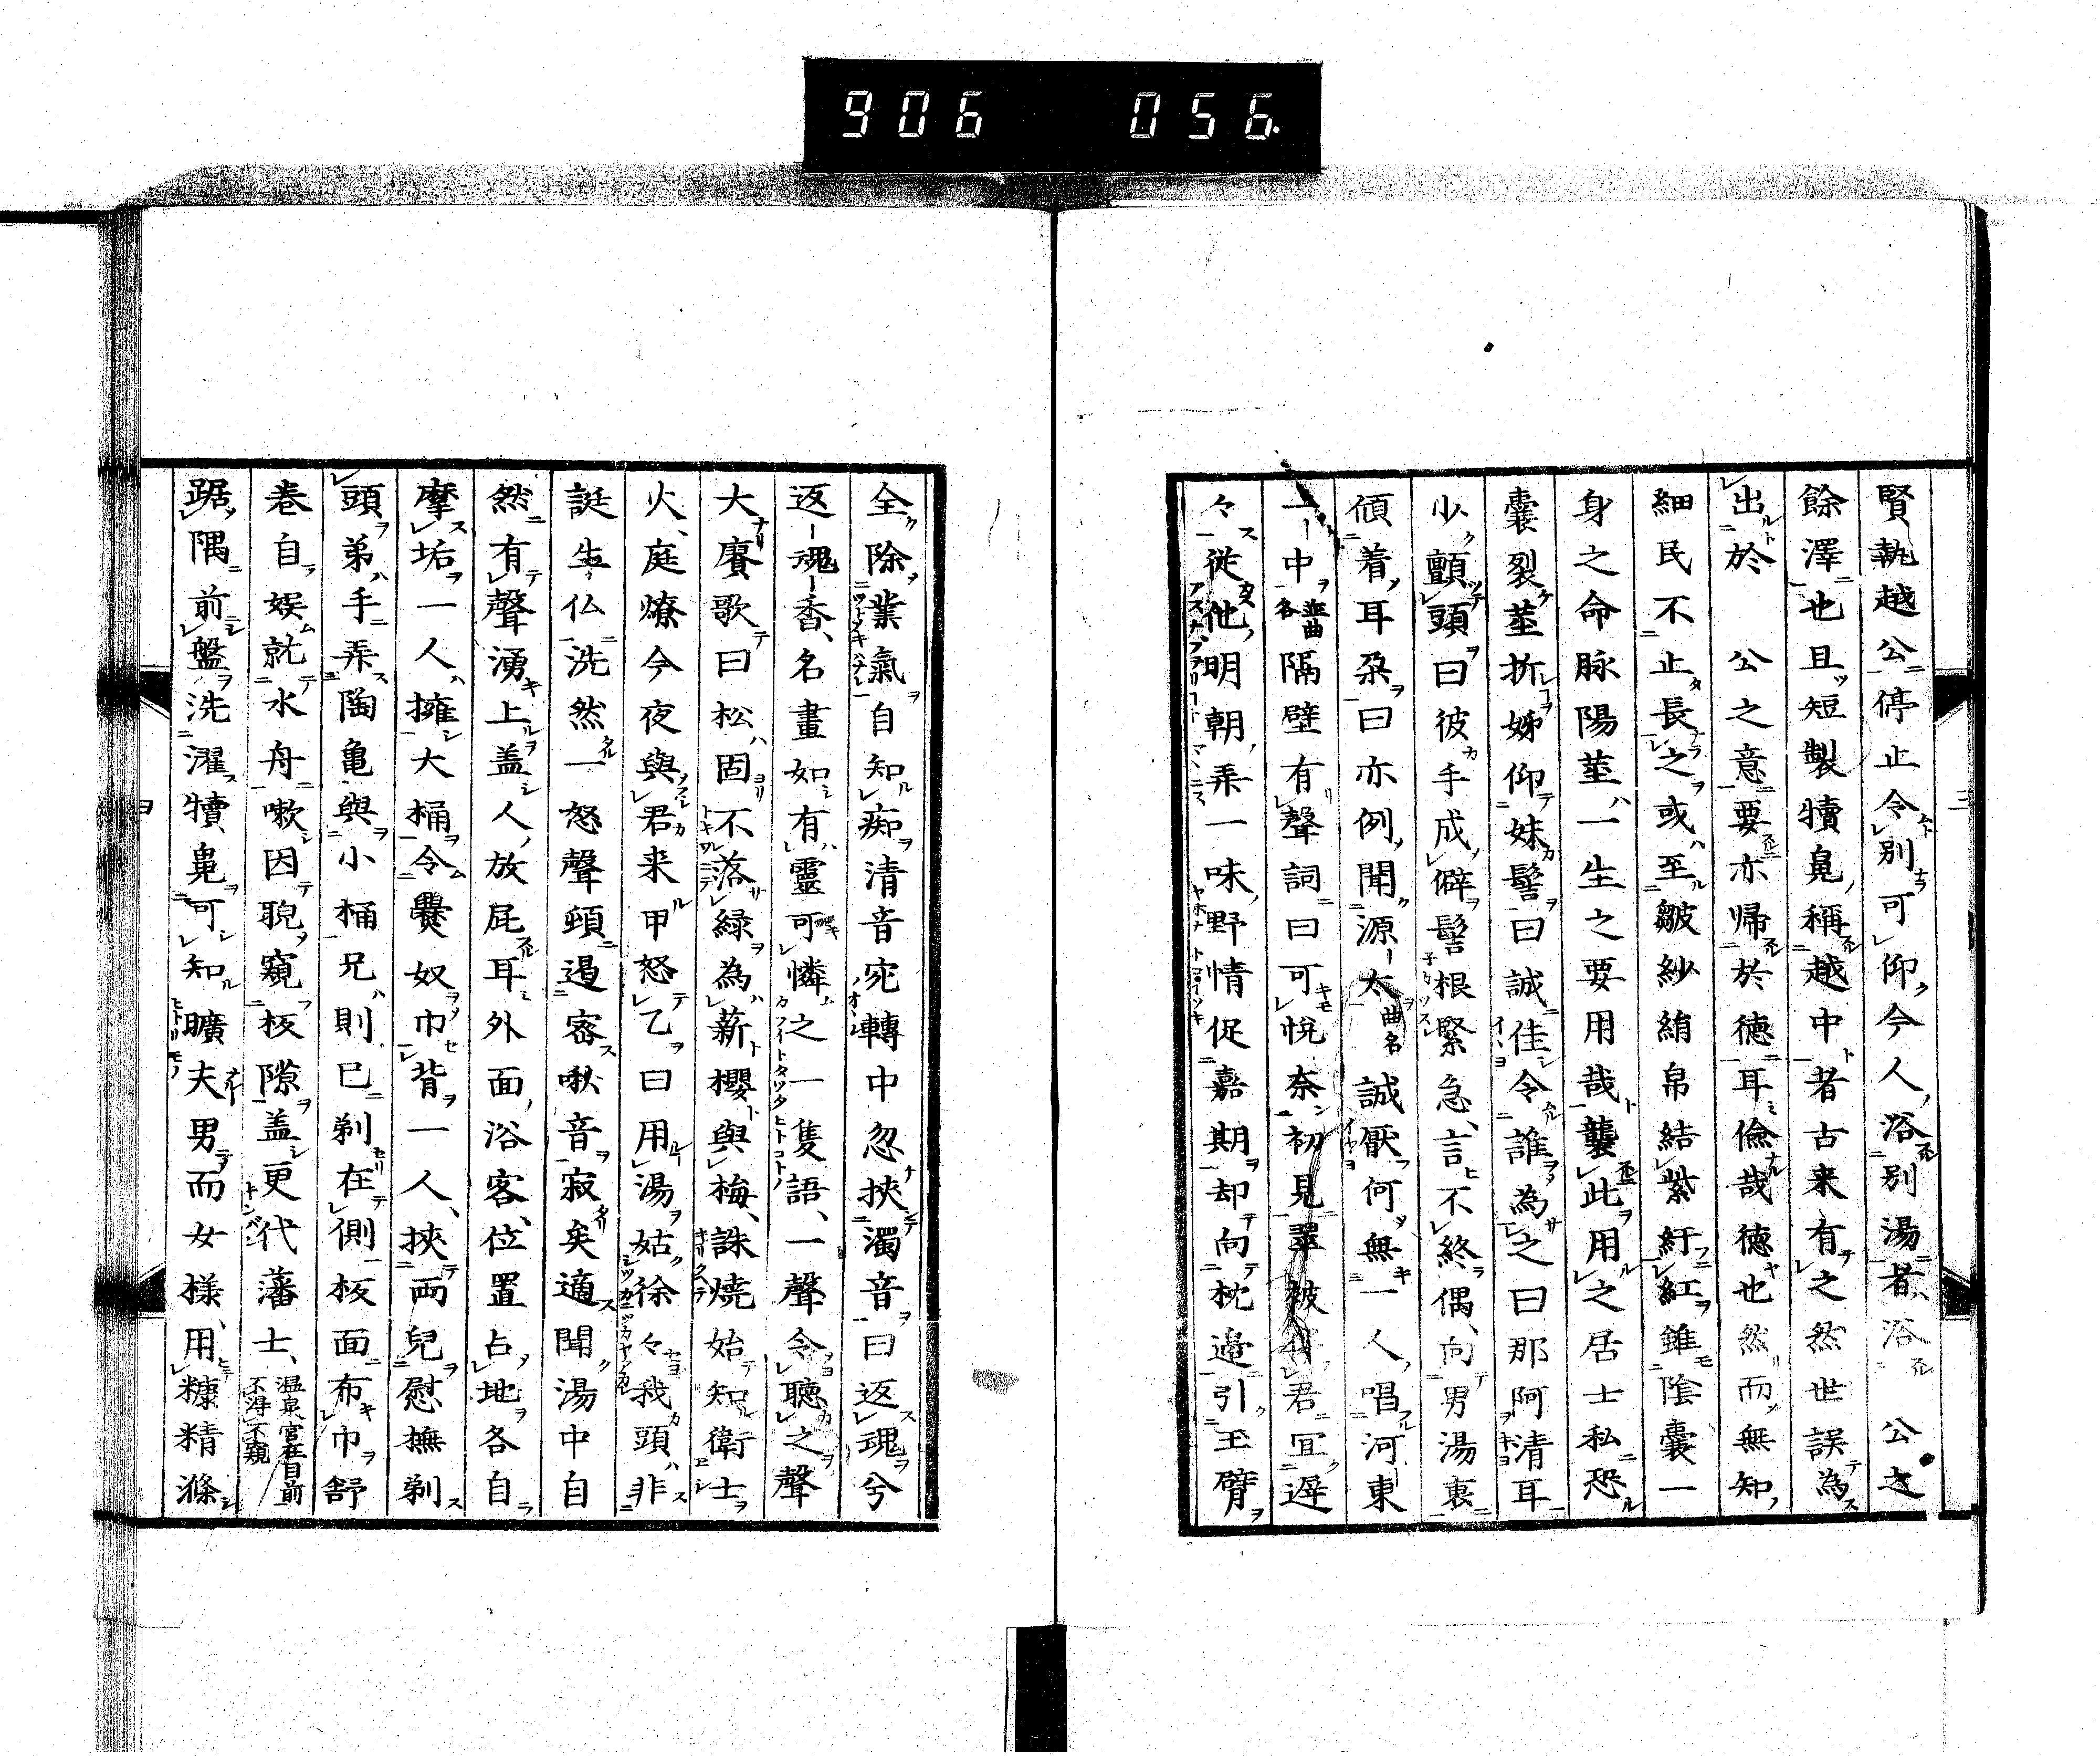 906 056.
賢執越公停止令別可仰今人浴別湯者浴 公之
餘澤也且短製犢鼻稱越中者古来有之然世誤為
出於 公之意要亦帰於徳耳倹哉徳也然而無知
細民不止長之或至皺紗絹帛結紫紆紅錐陰嚢一
身之命脉陽莖一生之要用哉襲此用之居士私恐
嚢裂莖折姊仰妹髻曰誠佳令誰為之曰那阿清耳
少顫頭曰彼手成僻髻根緊急言不終偶向男湯裏
傾着耳朶曰亦例聞源太曲名誠厭何無一人唱河東
一中並曲名隔壁有聲詞曰可悦奈初見翠被君宜遅
々従他明朝弄一味野情促嘉期却向枕邉引玉臂
全除業氣自知痴清音宛轉中忽挾濁音曰返魂兮
返魂香名畫如有靈可憐之一隻語一聲令聴之聲
大賡歌曰松固不落緑為薪櫻與梅誅燒始知衛士
火庭燎今夜與君来甲怒乙曰用湯姑徐々我頭非
誕生仏洗然一怒聲頓遏密啾音寂矣適聞湯中自
然有聲湧上盖人放屁耳外面浴客位置占地各自
摩垢一人擁大桶令爨奴巾背一人挾両兒慰撫剃
頭弟手弄陶亀與小桶兄則已剃在側板面布巾舒
巻自娯就水舟嗽因睨窺板隙盖更代藩士温泉宮在目前不得不窺
踞隅前盤洗濯犢鼻可知曠夫男而女様用糠精滌